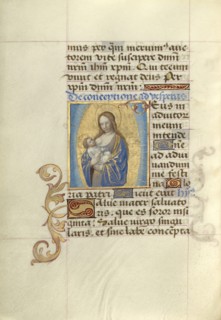 mus per quem meruimus auc
torem vite suscipere dnm
nrm ihm xpm. Qui tecum
vivit et regnat deus Per
xpm dnm nrm.
De conceptione ad vesperas
Deus in
adiutor
meum
intende
ne
ad adiu
vandum
me festi
na Glo
ria patri Sicut erat
Salve mater salvato
ris, que es soror insi
gnita: Salve virgo singu
laris, et sine labe concepta